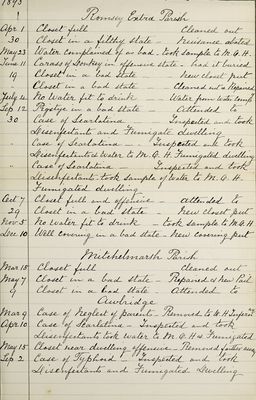 1893
Romsey Extra Parish
Apr 1 Closet full Cleaned out
30 Closet in a filthy state - Nuisance abated
May 23 Water complained of as bad - took sample to M.O.H.
June 11 Carass of Donkey in offensive state - had it buried
19 Closet in a bad state - New closet put
" Closet in a bad state - Cleaned out & Repaired
July 4 No Water fit to drink - Water from
Sep 12 in a bad state - Attended to
30 Case of Scarlatina Inspected and took
Desenfectants and Fumigate dwelling
" Case of Scarlatina - Inspected and took
Desenfectants Water to M.O.H. Fumigated dwelling
" Case of Scarlatina Inspected and took
Desenfectants took sample of water to M.O.H.
Fumigated dwelling
Oct 7 Closet full and offensive - attended to
29 Closet in a bad state - New closet put
Nov 5 No water fit to drink - took sample to M.O.H
Dec 10 Well covering in a bad state - New covering put
Mitchelmarsh Parish
Mar 18 Closet full Cleaned out
May 7 Closet in a bad state - Repaired & New Pail
9 Closet in a bad state - Attended to
Awbridge
Mar 9 Case of Neglect of parents - Removed to W.H.
Apr 10 Case of Scarlatina - Inspected and took
Desenfectants took water to M.O.H & Fumigated
May 15 Closet near dwelling offensive - Removed
Sep 2 Case of Typhoid - Inspected and took
Desenfectants and Fumigated Dwelling